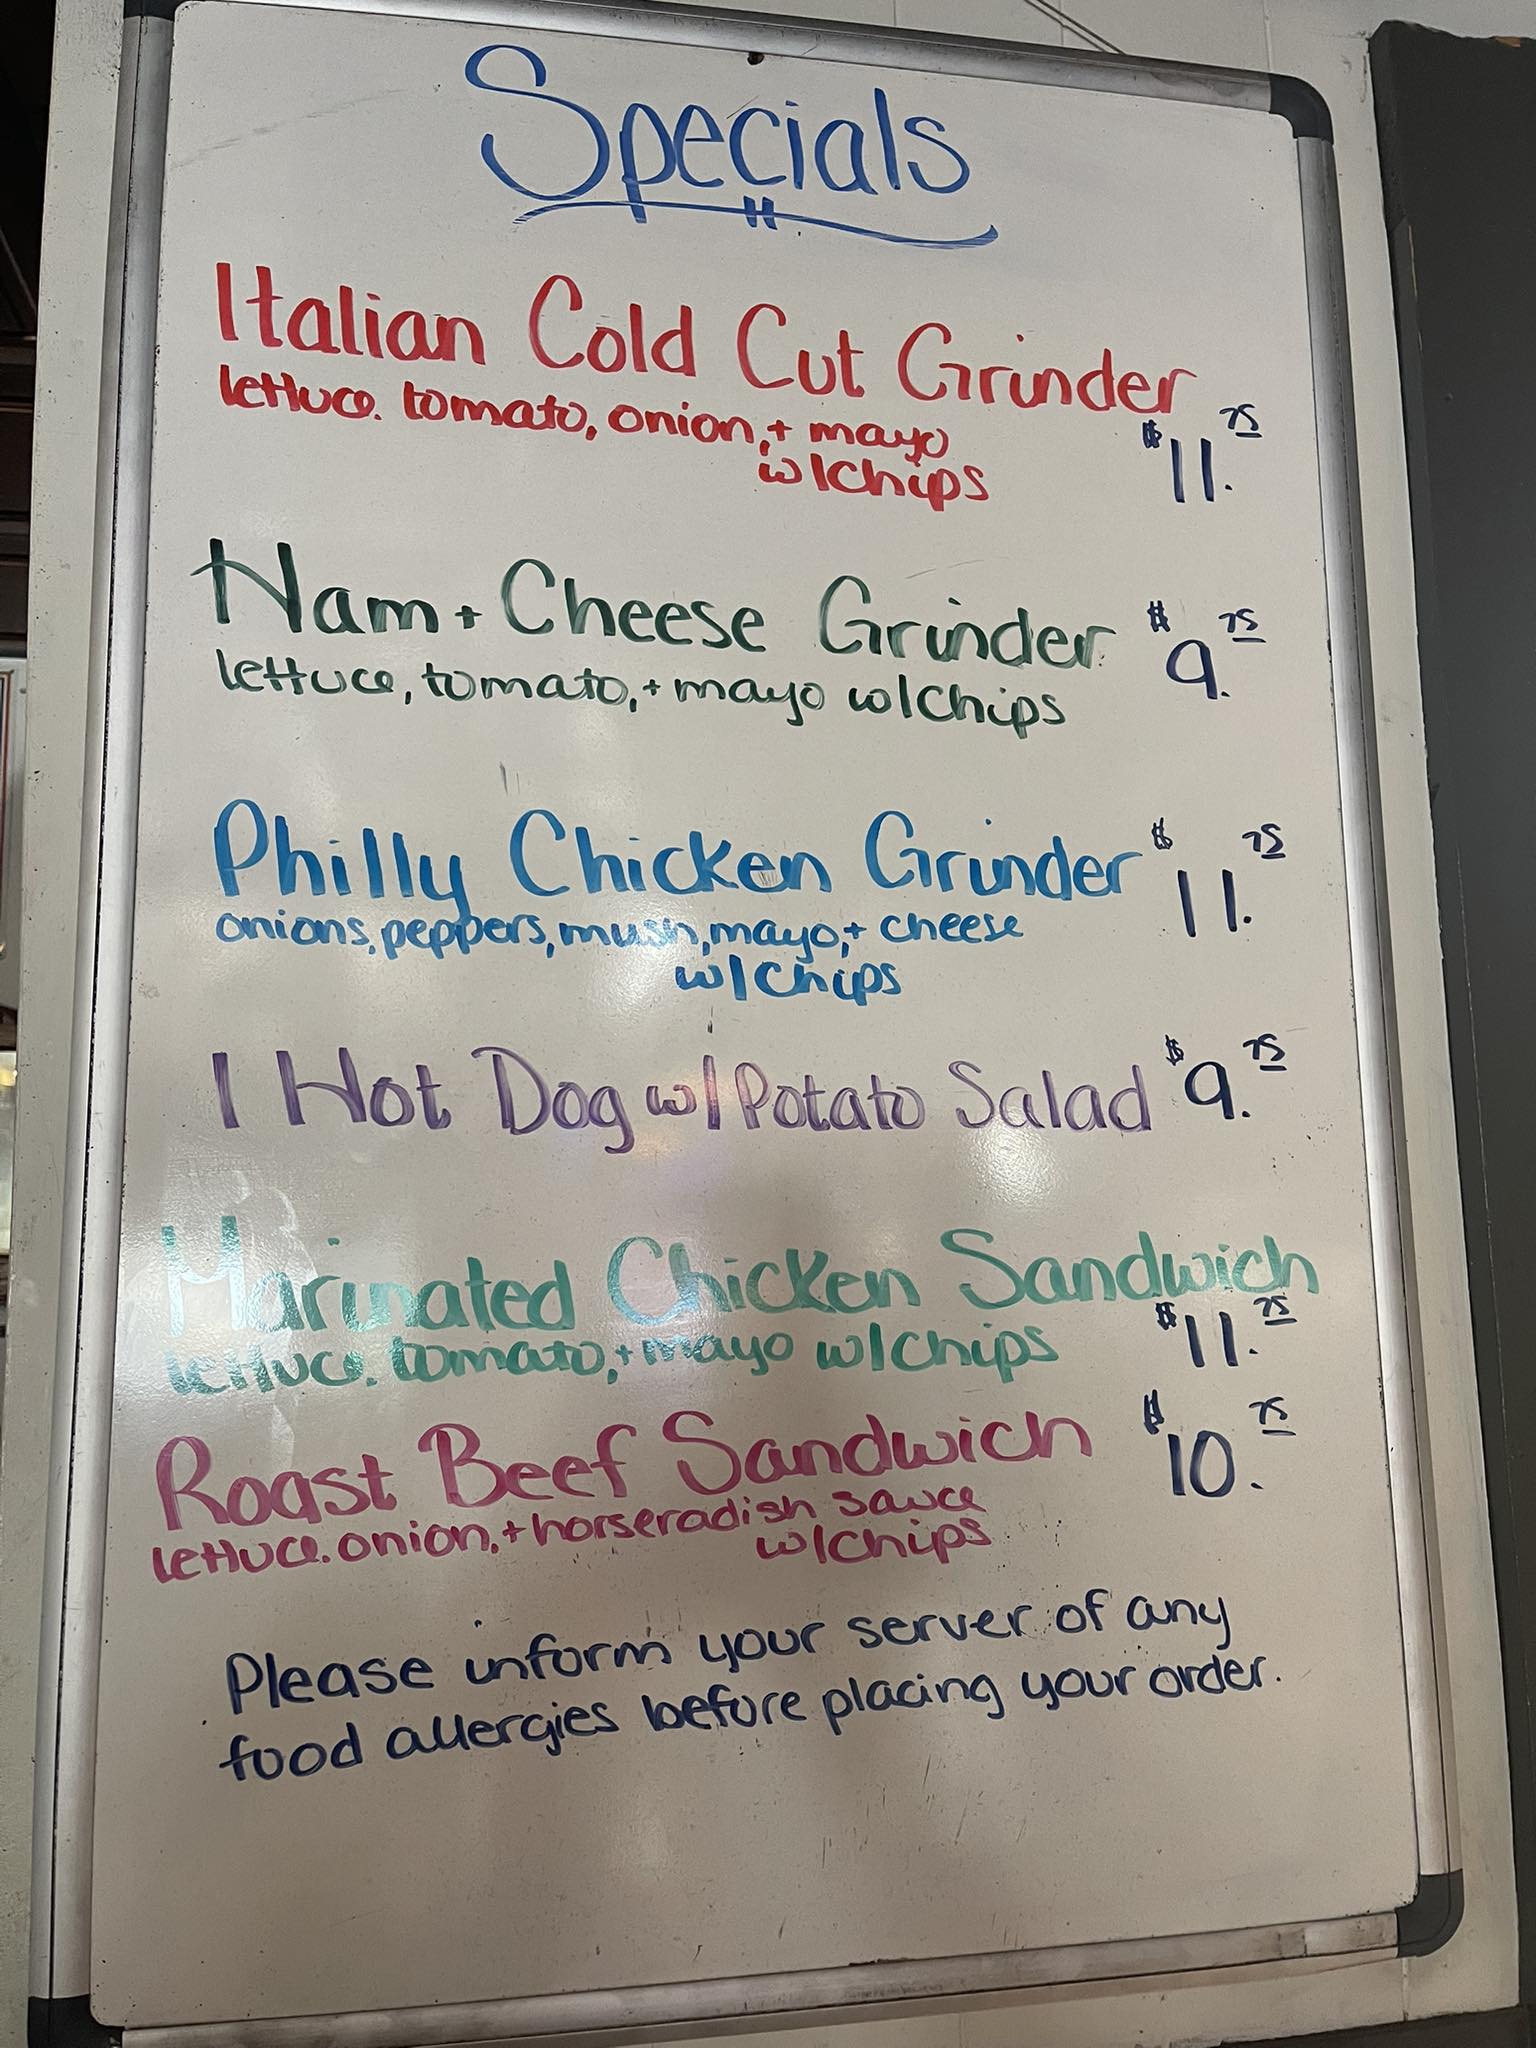 Specials
Italian Cold Cut Grinder
lettuce. tomato, onion, + mayo
w/chips $11.75
Ham + Cheese Grinder $9.75
lettuce, tomato, + mayo w/chips
Philly Chicken Grinder $11.75
onions, peppers, mush, mayo, + cheese
w/chips
1 Hot Dog w/ Potato Salad $9.75
Marinated Chicken Sandwich
lettuce. tomato, + mayo w/chips $11.75
Roast Beef Sandwich $10.75
lettuce. onion, + horseradish sauce
w/chips
Please inform your server of any
food allergies before placing your order.